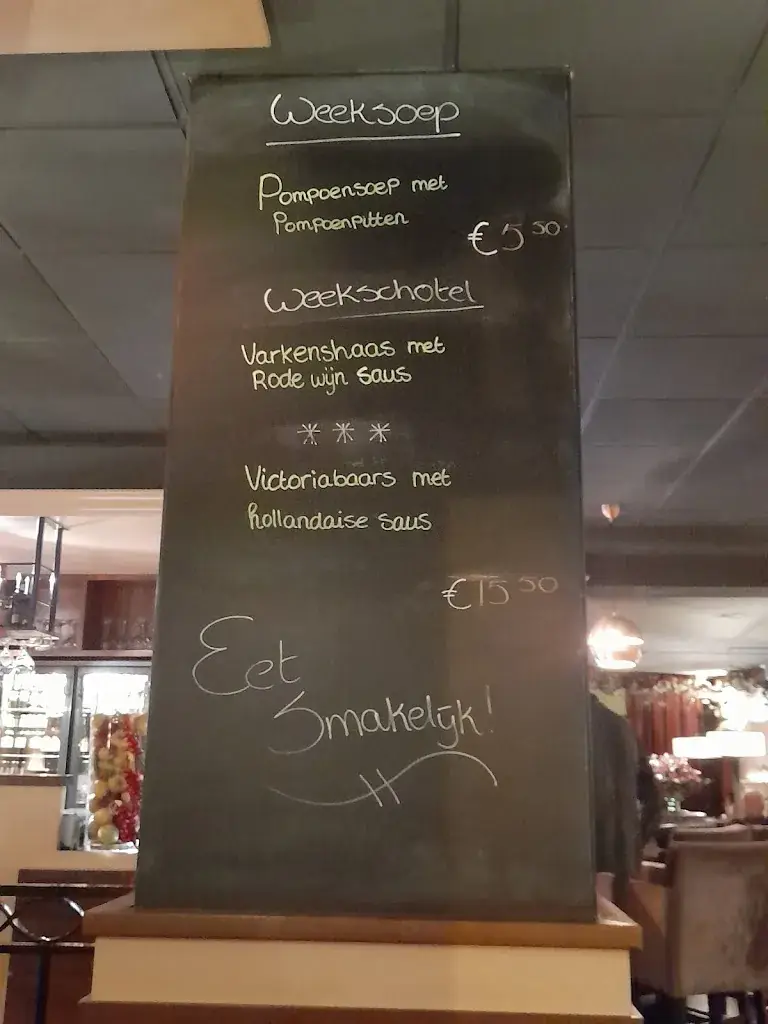 Weeksoep
Pompoensoep met
Pompoenpitten
€5 50
Weekschotel
Varkenshaas met
Rode wijn saus
***
Victoriabaars met
hollandaise saus
€15 50
Eet
Smakelijk!